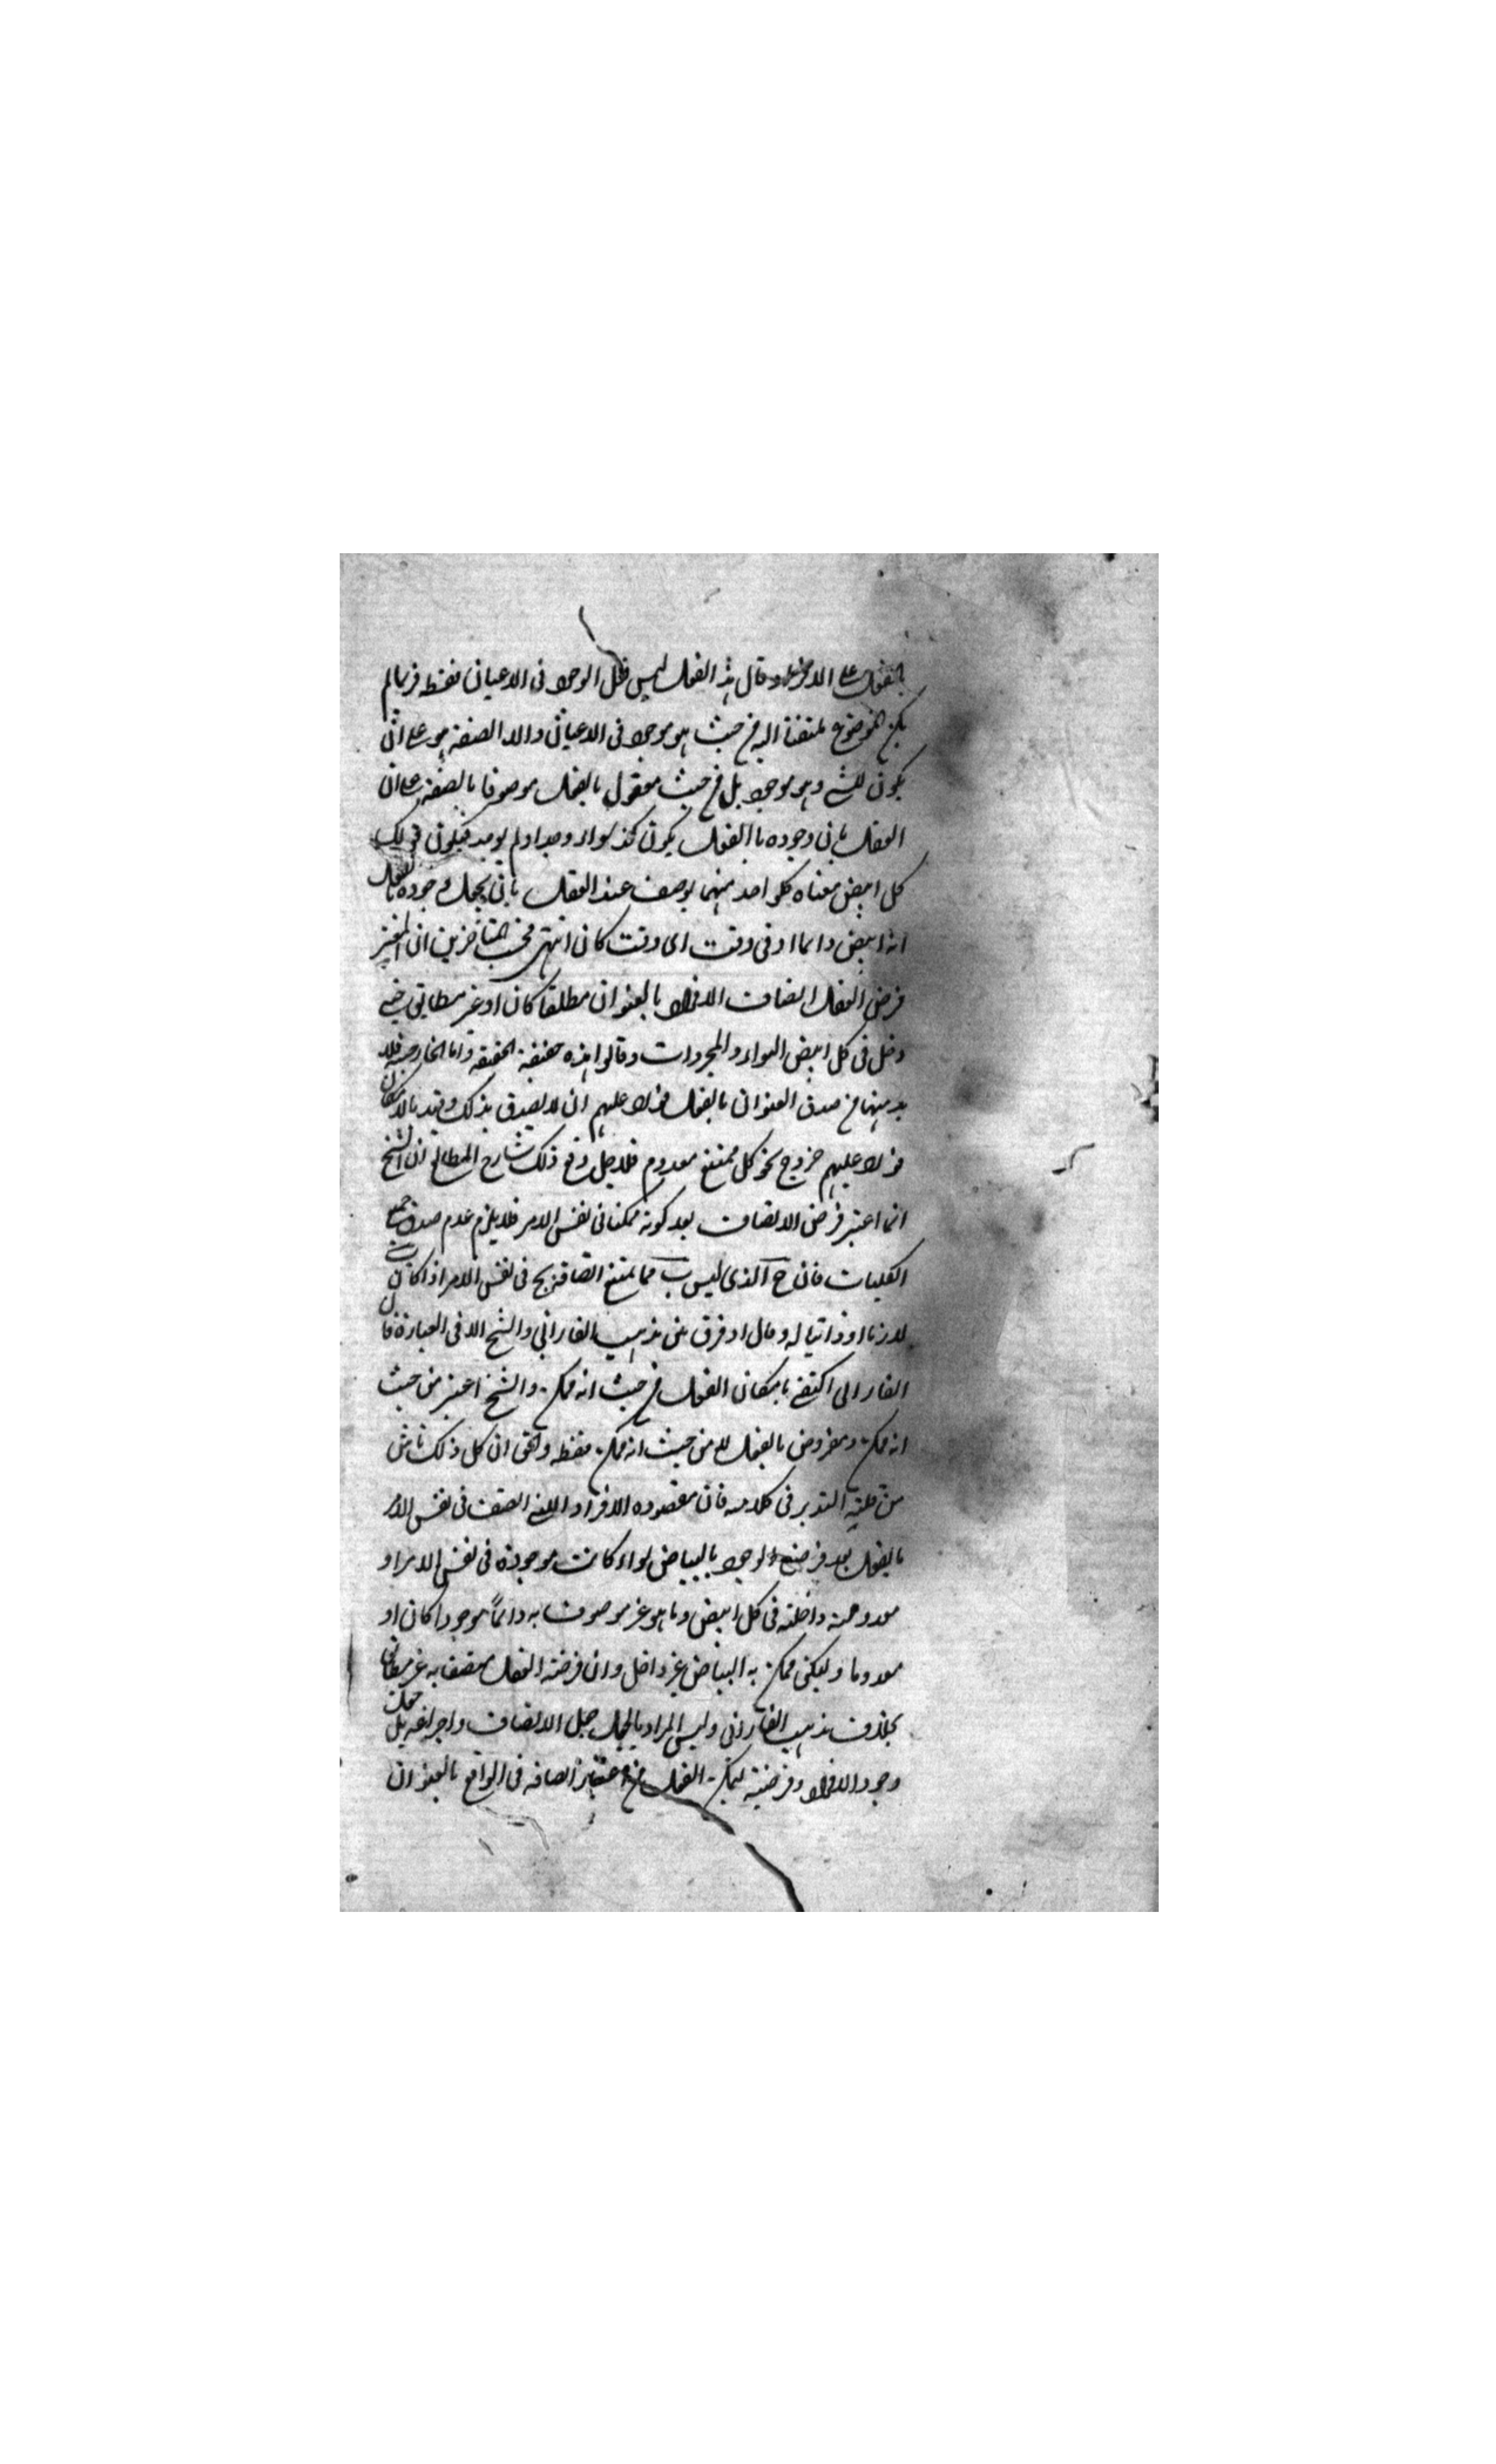 بالفعل على الاخر وقال هذا الفعل ليس فعل الوجود في الاعيان فقط فربما لم
يكن الموضوع ملتفتا اليه من حيث هو موجود في الاعيان ولا الصفة هو على ان
يكون للشيء وهو موجود بل من حيث معقول بالفعل موصوفا بالصفة على ان
العقل بان وجوده بالفعل يكون كذا سواء وجد او لم يوجد فيكون قولك
كل ابيض معناه كل واحد منهما يوصف عند العقل بان يجعل وجوده بالفعل
انه ابيض دائما او في وقت اى وقت كان انتهى المتأخرين ان المعتبر
فرض العقل اتصاف الافراد بالعنوان مطلقا كان او غير مطابق
دخل في كل ابيض السواد والمجردات وقالوا هذه حقيقة الحقيقة واما الخارجية فلا
بد منها من صدق العنوان بالفعل فورد عليهم ان لا يصدق بذلك وقيد بالامكان
فورد عليهم خروج نحو كل ممتنع معدوم فلاجل دفع ذلك شارح المطالع ان الشيخ
انما اعتبر فرض الاتصاف بعد كونه ممكنا في نفس الامر فلا يلزم عدم صدق جميع
الكليات فان ج الذى ليس ب مما يمتنع اتصافه بج في نفس الامر اذا كان ب
لازما او ذاتيا له وقال لا فرق بين مذهب الفارابى والشيخ الا في العبارة فان
الفارابى اكتفى بامكان الفعل من حيث انه ممكن والشيخ اعتبر من حيث
انه ممكن ومفروض بالفعل لا من حيث انه ممكن فقط والحق ان كل ذلك ناش
من قلة التدبر في كلامه فان مقصوده الافراد التى اتصف في نفس الامر
بالفعل بعد فرض الوجود بالبياض سواء كانت موجودة في نفس الامر او
معدومة داخلة في كل ابيض وما هو غير موصوف به دائماً موجودا كان او
معدوما وليكن ممكن به البياض غير داخل وان فرضه العقل متصفا به غير مطابق
بخلاف مذهب الفارابى وليس المراد بالجعل جعل الاتصاف واجراءه بل جعل
وجود الافراد وفرضيته ليمكن الفعل من اعتبار اتصافه في الواقع بالعنوان